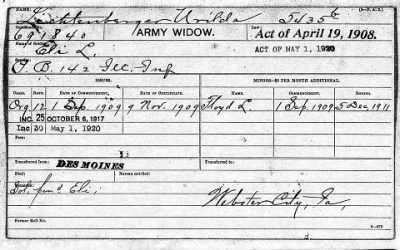 Lichtenberger Urilda 5435
691840 ARMY WIDOW. Act of April 19, 1908.
Eli L. ACT OF MAY 1, 1920
F, B 142 Ill. Inf
ISSUES. MINORS—$2 PER MONTH ADDITIONAL.
CLASS. RATE. DATE OF COMMENCEMENT. DATE OF CERTIFICATE. NAME. COMMENCEMENT.
Org 12 1 Sep. 1909 9 Nov. 1909 Floyd L. 1 Sep. 1909 5 Dec 1911
INC. 25 OCTOBER 6, 1917
Inc 30 May 1, 1920
Transferred from: DES MOINES Transferred to:
Sol. Eli,
Webster City, Ia,
Former Roll No.